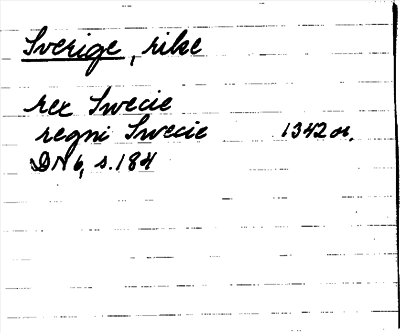 Sverige, rike
rex Swecie
regni Swecie 1342 or.
DN 6, s. 184